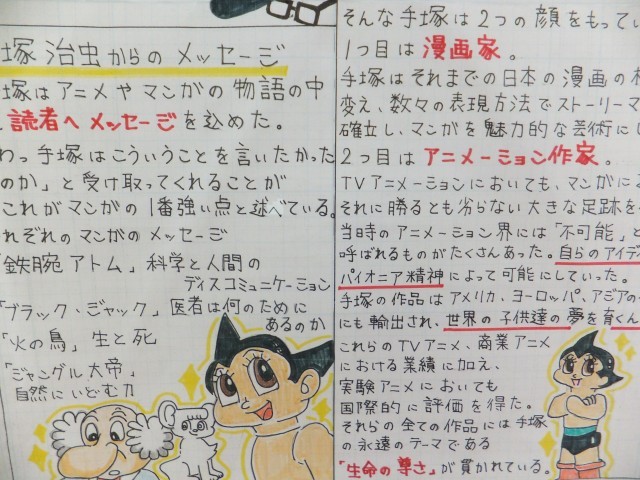 塚 治虫からの メッセージ
塚はアニメや マンガの 物語の中
読者へ メッセージを込めた。
わっ手塚はこういうことを言いたかった
のか」と 受け取ってくれることが
これがマンガの 1番強い点と述べている。
れぞれのマンガのメッセージ
「鉄腕 アトム」科学と人間の
ディスコミュニケーション
「ブラック・ジャック」医者は何のために
あるのか
「火の鳥」生と死
「ジャングル大帝」
自然にいどむ力
そんな手塚は2つの顔をもってい
1つ目は 漫画家。
手塚はそれまでの日本の漫画の
変え、数々の表現方法でストーリーマ
確立し、マンガを魅力的な芸術に
2つ目は アニメーション作家。
TVアニメーションにおいても、マンガに
それに勝るとも劣らない大きな足跡を
当時のアニメーション界には「不可能」と
呼ばれるものがたくさんあった。自らのアイデ
パイオニア精神によって可能にしていった。
手塚の作品はアメリカ、ヨーロッパ、アジアの
にも輸出され、世界の子供達の夢を育くん
これらのTVアニメ、商業アニメ
における業績に加え、
実験アニメにおいても
国際的に評価を得た。
それらの全ての作品には手塚
の永遠のテーマである
「生命の尊さ」が貫かれている。